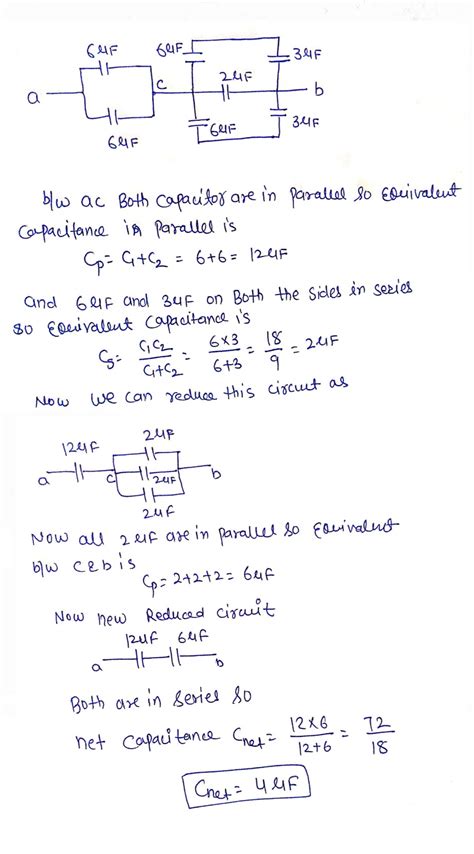 6μF 6μF 3μF
a c 2μF b
6μF 6μF 3μF
b/w ac Both Capacitor are in Parallel so Equivalent
Capacitance in Parallel is
Cp = C1+C2 = 6+6 = 12μF
And 6μF and 3μF on Both the sides in series
so Equivalent Capacitance is
Cs = C1C2/C1+C2 = 6×3/6+3 = 18/9 = 2μF
Now we can reduce this circuit as
12μF 2μF
a c 2μF b
2μF
Now all 2μF are in parallel so Equivalent
b/w c & b is
Cp = 2+2+2 = 6μF
Now new Reduced circuit
12μF 6μF
a b
Both are in Series so
net Capacitance Cnet = 12×6/12+6 = 72/18
Cnet = 4μF